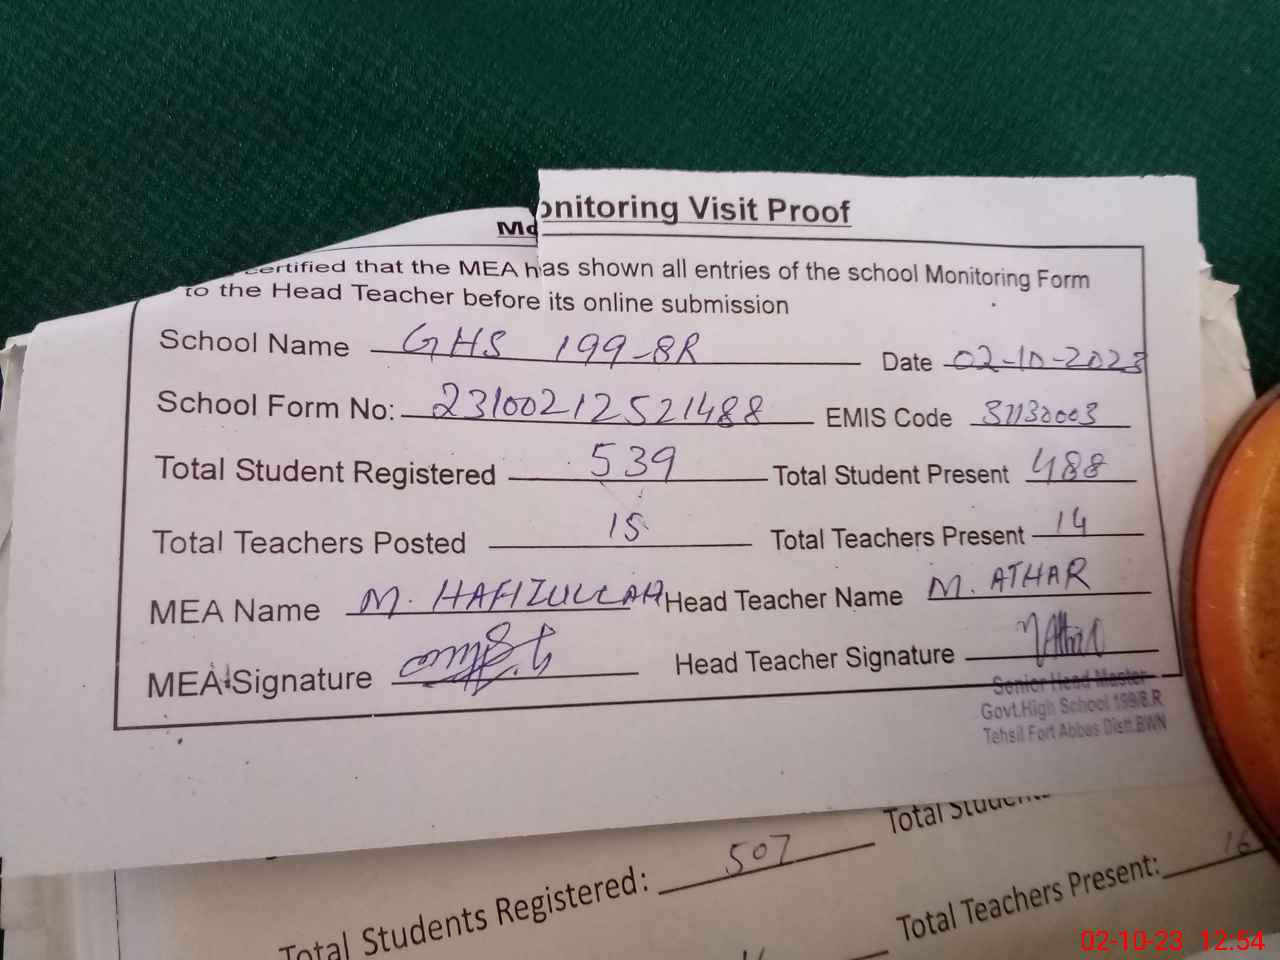 Monitoring Visit Proof
certified that the MEA has shown all entries of the school Monitoring Form
to the Head Teacher before its online submission
School Name GHS 199-8R Date 02-10-2023
School Form No: 23100212521488 EMIS Code 31130003
Total Student Registered 539 Total Student Present 488
Total Teachers Posted 15 Total Teachers Present 14
MEA Name M. HAFIZULLAH Head Teacher Name M. ATHAR
MEA Signature Head Teacher Signature
Senior Head Master
Govt.High School 199/8.R
Tehsil Fort Abbas Distt.BWN
Total Students Registered: 507 Total Students
Total Teachers Present: 16
02-10-23 12:54